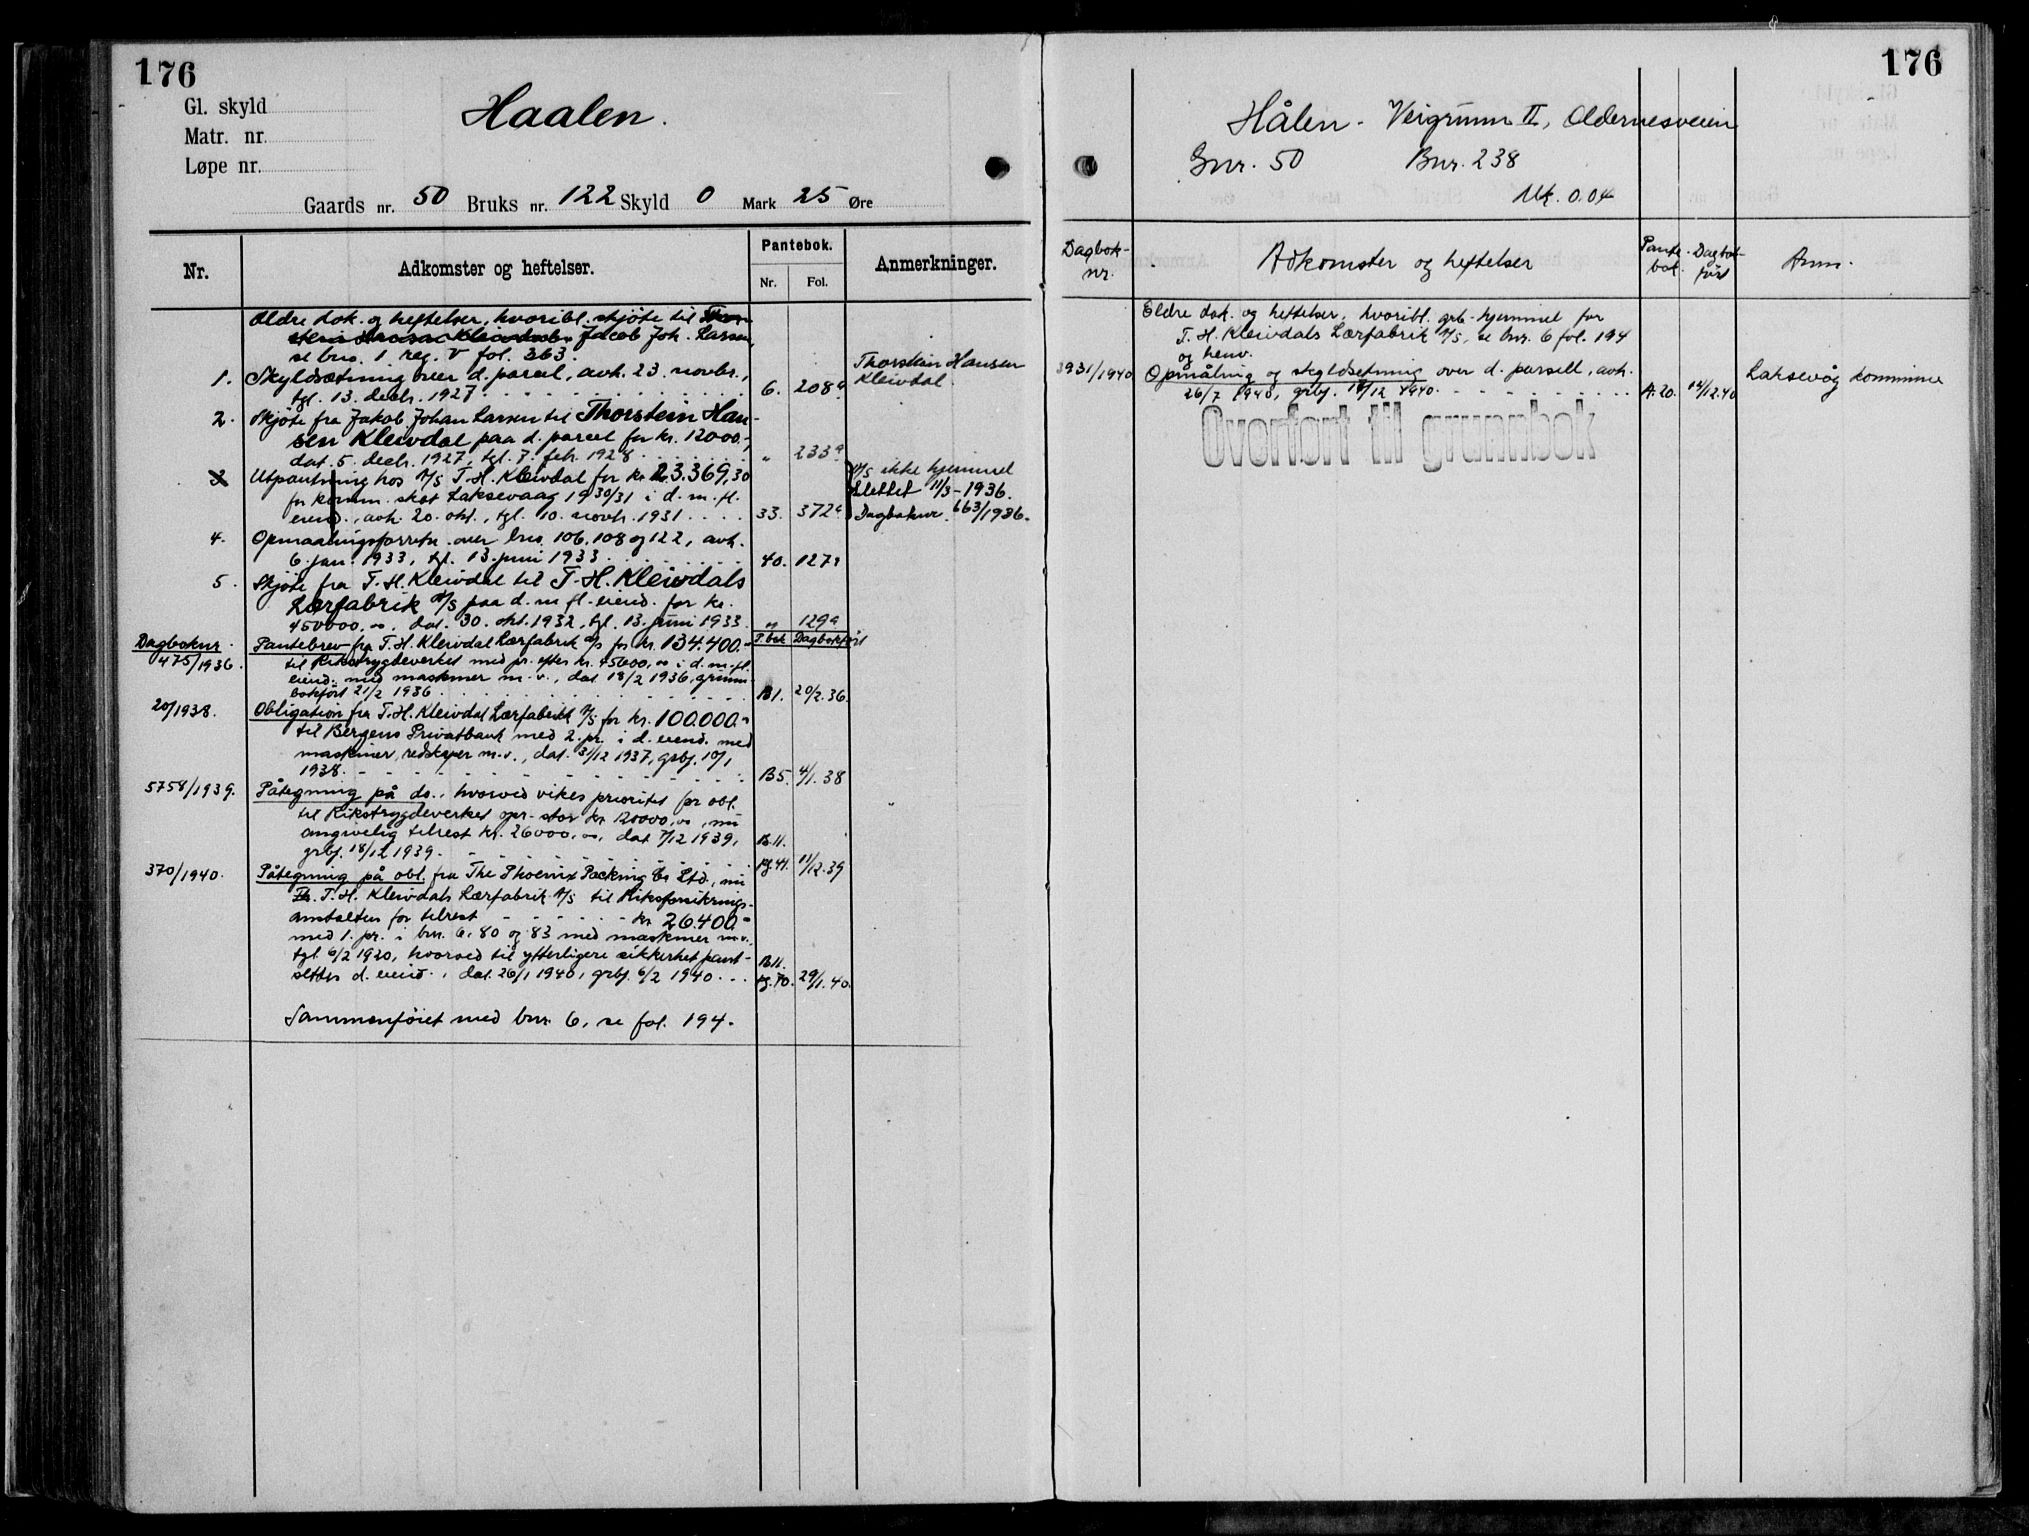 176
Gl. skyld
Matr. nr.
Løpe nr.
Haalen.
Gaards nr. 50 Bruks nr. 122 Skyld 0 Mark 25 Øre
Nr.
Adkomster og heftelser.
Pantebok.
Nr. Fol.
Anmerkninger.
Ældre dok. og heftelser, hvoribl. skjøte til
Jacob Joh. Larsen,
se brus. 1 reg. V fol. 363.
1. Skyldsætning over d. parcel, avh. 23. novbr., Thorstein Hansen
tgl. 13. decbr. 1927 6. 208a Kleivdal.
2. Skjøte fra Jakob Johan Larsen til Thorstein Han-
sen Kleivdal paa d. parcel for kr. 12000.-,
dat. 5. decbr. 1927, tgl. 7. febr. 1928 " 233a
3 Utpantning hos A/S T. H. Kleivdal for kr. 23.369,30 A/S ikke hjemmel
for komm. skat Laksevaag 1930/31 i d. m. fl. Slettet 11/3-1936.
eiend., avh. 20. okt., tgl. 10. novbr. 1931 33. 372a Dagboknr. 663/1936.
4. Opmaalingsforretn. over brns. 106, 108 og 122, avh.
6. jan. 1933, tgl. 13. juni 1933 40. 127a
5. Skjøte fra T. H. Kleivdal til T. H. Kleivdals
Lærfabrik A/S paa d. m. fl. eiend. for kr.
450000,oo, dat. 30. okt. 1932, tgl. 13. juni 1933 " 129a
Dagboknr. Pantebrev fra T. H. Kleivdal Lærfabrik A/S for kr. 134.400.- P.bok Dagbokført
475/1936. til Rikstrygdeverket med pr. efter kr. 45600,oo i d. m. fl.
eiend. med maskiner m. v., dat 18/2 1936, grunn-
bokført 21/2 1936 B1. 20/2.36.
20/1938. Obligation fra T. H. Kleivdal Lærfabrik A/S for kr. 100.000.-
til Bergens Privatbank med 2. pr. i d. eiend. med
maskiner, redskaper m. v., dat. 31/12 1937, grbf. 10/1
1938. B5. 4/1.38
5758/1939. Påtegning på do., hvorved vikes prioritet for obl.
til Rikstrygdeverket opr. stor kr 120000,oo, nu
angivelig tilrest kr. 26000,oo, dat 7/12 1939,
grbf. 18/12 1939. B.11. pg.41. 11/12.39
370/1940. Påtegning på obl. fra The Phoenix Packing Co Ltd., nu
T. H. Kleivdals Lærfabrik A/S til Riksforsikrings-
anstalten for tilrest kr. 26.400.-
med 1. pr. i bnr. 6, 80 og 83 med maskiner m. v.,
tgl 6/2 1920, hvorved til ytterligere sikkerhet pant-
settes d. eiend., dat. 26/1 1940, grbf. 6/2 1940 B.11. pg.70. 29/1.40.
Sammenføiet med bnr. 6, se fol. 194.
176
Hålen - Veigrunn II, Aldernesveien
Gnr. 50 Bnr. 238
Mk. 0.04
Dagbok-
nr.
Adkomster og heftelser
Pante-
bok.
Dagbok-
ført
Anm.
Eldre dok. og heftelser, hvoribl. grb-hjemmel for
T. H. Kleivdals Lærfabrik A/S, se bnr. 6 fol. 194
og henv.
3931/1940 Opmåling og skyldsetning over d. parsell, avh. Laksevåg kommune
26/7 1940, grbf. 18/12 1940. A.20. 14/12.40
Overført til grunnbok